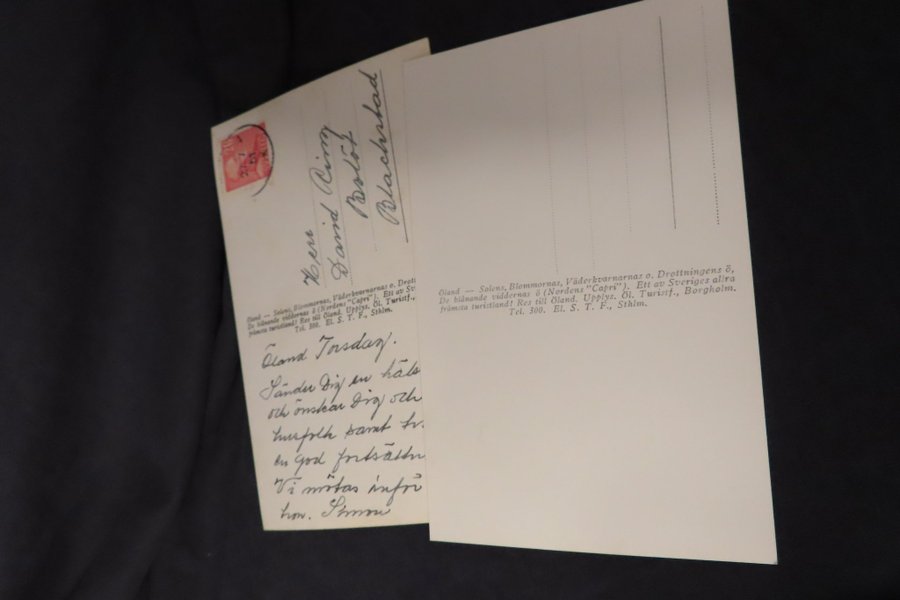 Herr
David Ring
Blackstad
Öland — Solens, Blommornas, Väderkvarnarnas o. Drott
De blånande viddernas ö (Nordens "Capri"). Ett av Sv
främsta turistland! Res till Öland. Upplys. Öl. Turistf.,
Tel. 300. El. S. T. F., Sthlm.
Öland Torsdag.
Sänder Dig en häls
och önskar Dig och
husfolk samt
en god fortsättn
Vi mötas inför
Simon
Öland — Solens, Blommornas, Väderkvarnarnas o. Drottningens ö,
De blånande viddernas ö (Nordens "Capri"). Ett av Sveriges allra
främsta turistland! Res till Öland. Upplys. Öl. Turistf., Borgholm.
Tel. 300. El. S. T. F., Sthlm.